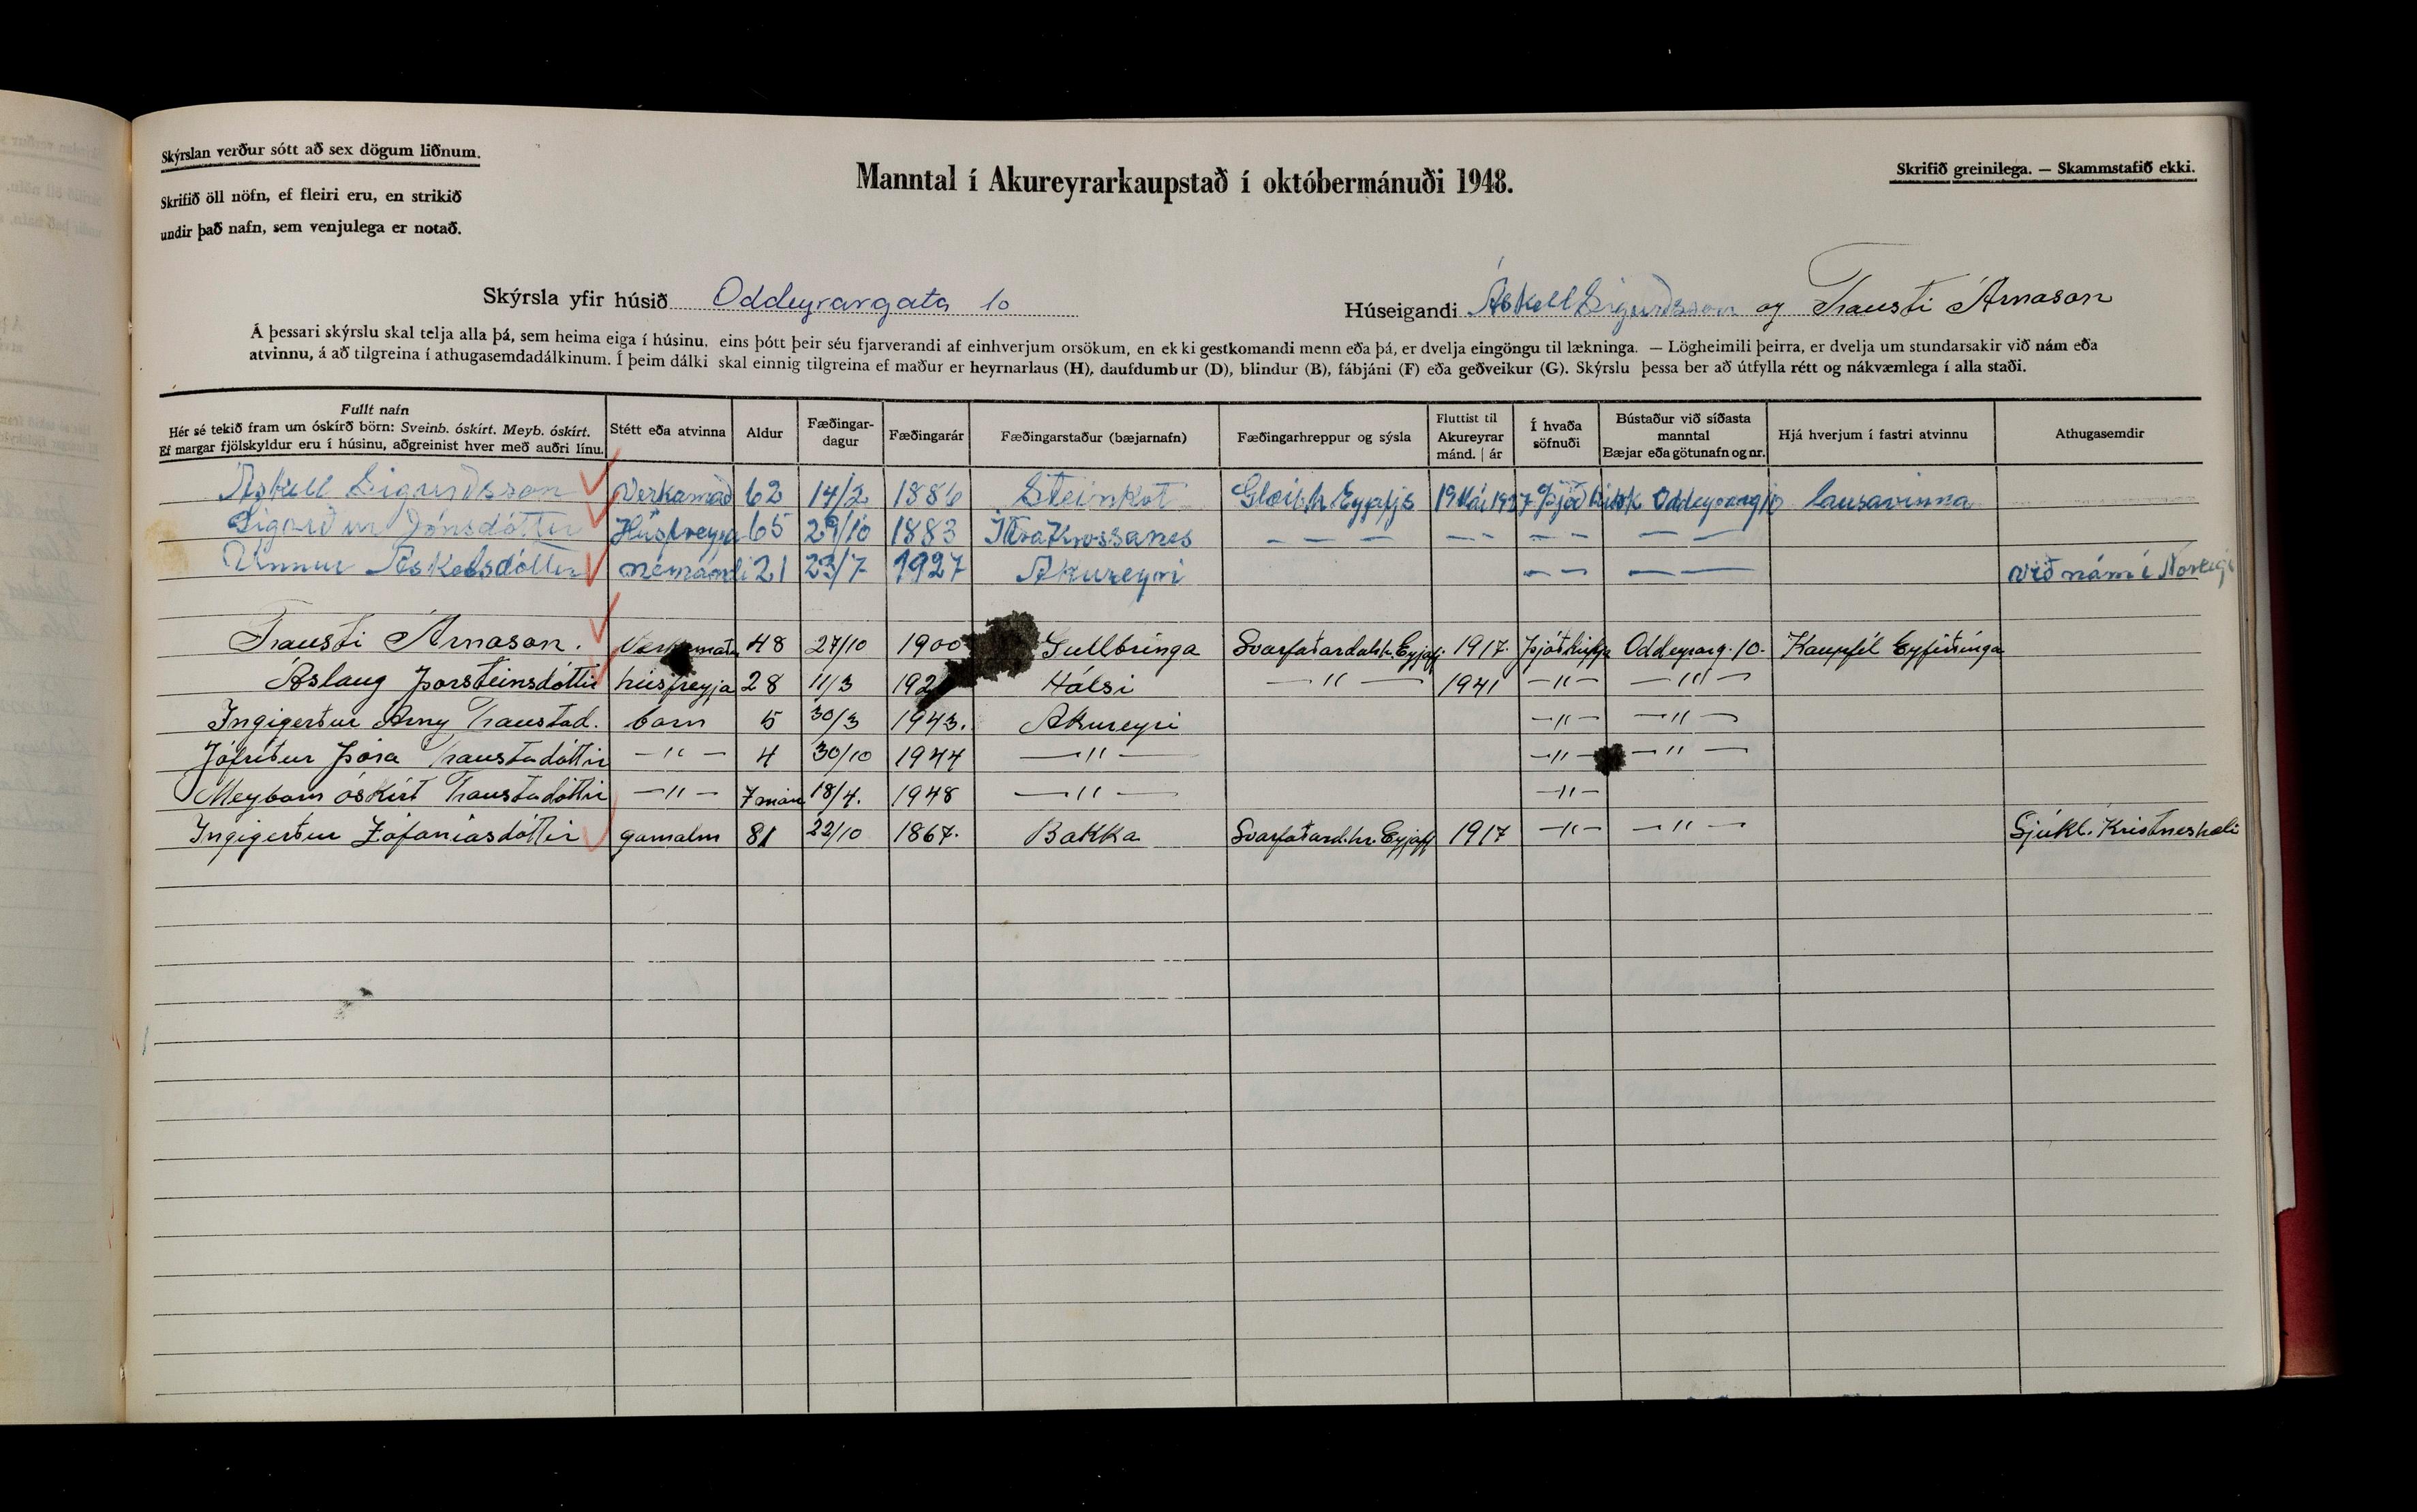 Skýrslan verður sótt að sex dögum liðnum.
Skrifið öll nöfn, ef fleiri eru, en strikið
undir það nafn, sem venjulega er notað.
Manntal í Akureyrarkaupstað í októbermánuði 1948.
Skrifið greinilega. — Skammstafið ekki.
Skýrsla yfir húsið Oddeyrargata 10
Húseigandi Áskell Sigurðsson og Trausti Árnason
Á þessari skýrslu skal telja alla þá, sem heima eiga í húsinu, eins þótt þeir séu fjarverandi af einhverjum orsökum, en ekki gestkomandi menn eða þá, er dvelja eingöngu til lækninga. — Lögheimili þeirra, er dvelja um stundarsakir við nám eða
atvinnu, á að tilgreina í athugasemdadálkinum. Í þeim dálki skal einnig tilgreina ef maður er heyrnarlaus (H), daufdumbur (D), blindur (B), fábjáni (F) eða geðveikur (G). Skýrslu þessa ber að útfylla rétt og nákvæmlega í alla staði.
Fullt nafn
Hér sé tekið fram um óskírð börn: Sveinb. óskírt. Meyb. óskírt.
Ef margar fjölskyldur eru í húsinu, aðgreinist hver með auðri línu.
Stétt eða atvinna
Aldur
Fæðingar-
dagur
Fæðingarár
Fæðingarstaður (bæjarnafn)
Fæðingarhreppur og sýsla
Fluttist til
Akureyrar
mánd. | ár
Í hvaða
söfnuði
Bústaður við síðasta
manntal
Bæjar eða götunafn og nr.
Hjá hverjum í fastri atvinnu
Athugasemdir
Áskell Sigurðsson Verkamað 62 14/2 1886 Steinkot Glæsib.h Eyjafjs 19 Mái 1927 Þjóðkirk Oddeyrarg 10 lausavinna
Sigurður Jónsdóttir Húsfreyja 65 29/10 1883 Ytra Krossanes — — — — — — — — —
Unnur Áskelsdóttir nemandi 21 23/7 1927 Akureyri — — — — við nám í Noregi
Trausti Árnason. Verkamaður 48 27/10 1900 Gullbringa Svarfaðardalsh. Eyjafj. 1917. Þjóðkirkja Oddeyrarg. 10. Kaupfél Eyfirðinga
Áslaug Þorsteinsdóttir húsfreyja 28 11/3 192 Hálsi —"— 1941 —"— —"—
Ingigerður Árný Traustad. barn 5 30/3 1943. Akureyri —"— —"—
Jófríður Þóra Traustadóttir —"— 4 30/10 1944 —"— —"— —"—
Meybarn óskírt Traustadóttir —"— 7 mán 18/4. 1948 —"— —"—
Ingigerður Zófaníasdóttir gamalm 81 22/10 1867. Bakka Svarfaðard.hr. Eyjafj 1917 —"— —"— Sjúkl. Kristneshæli